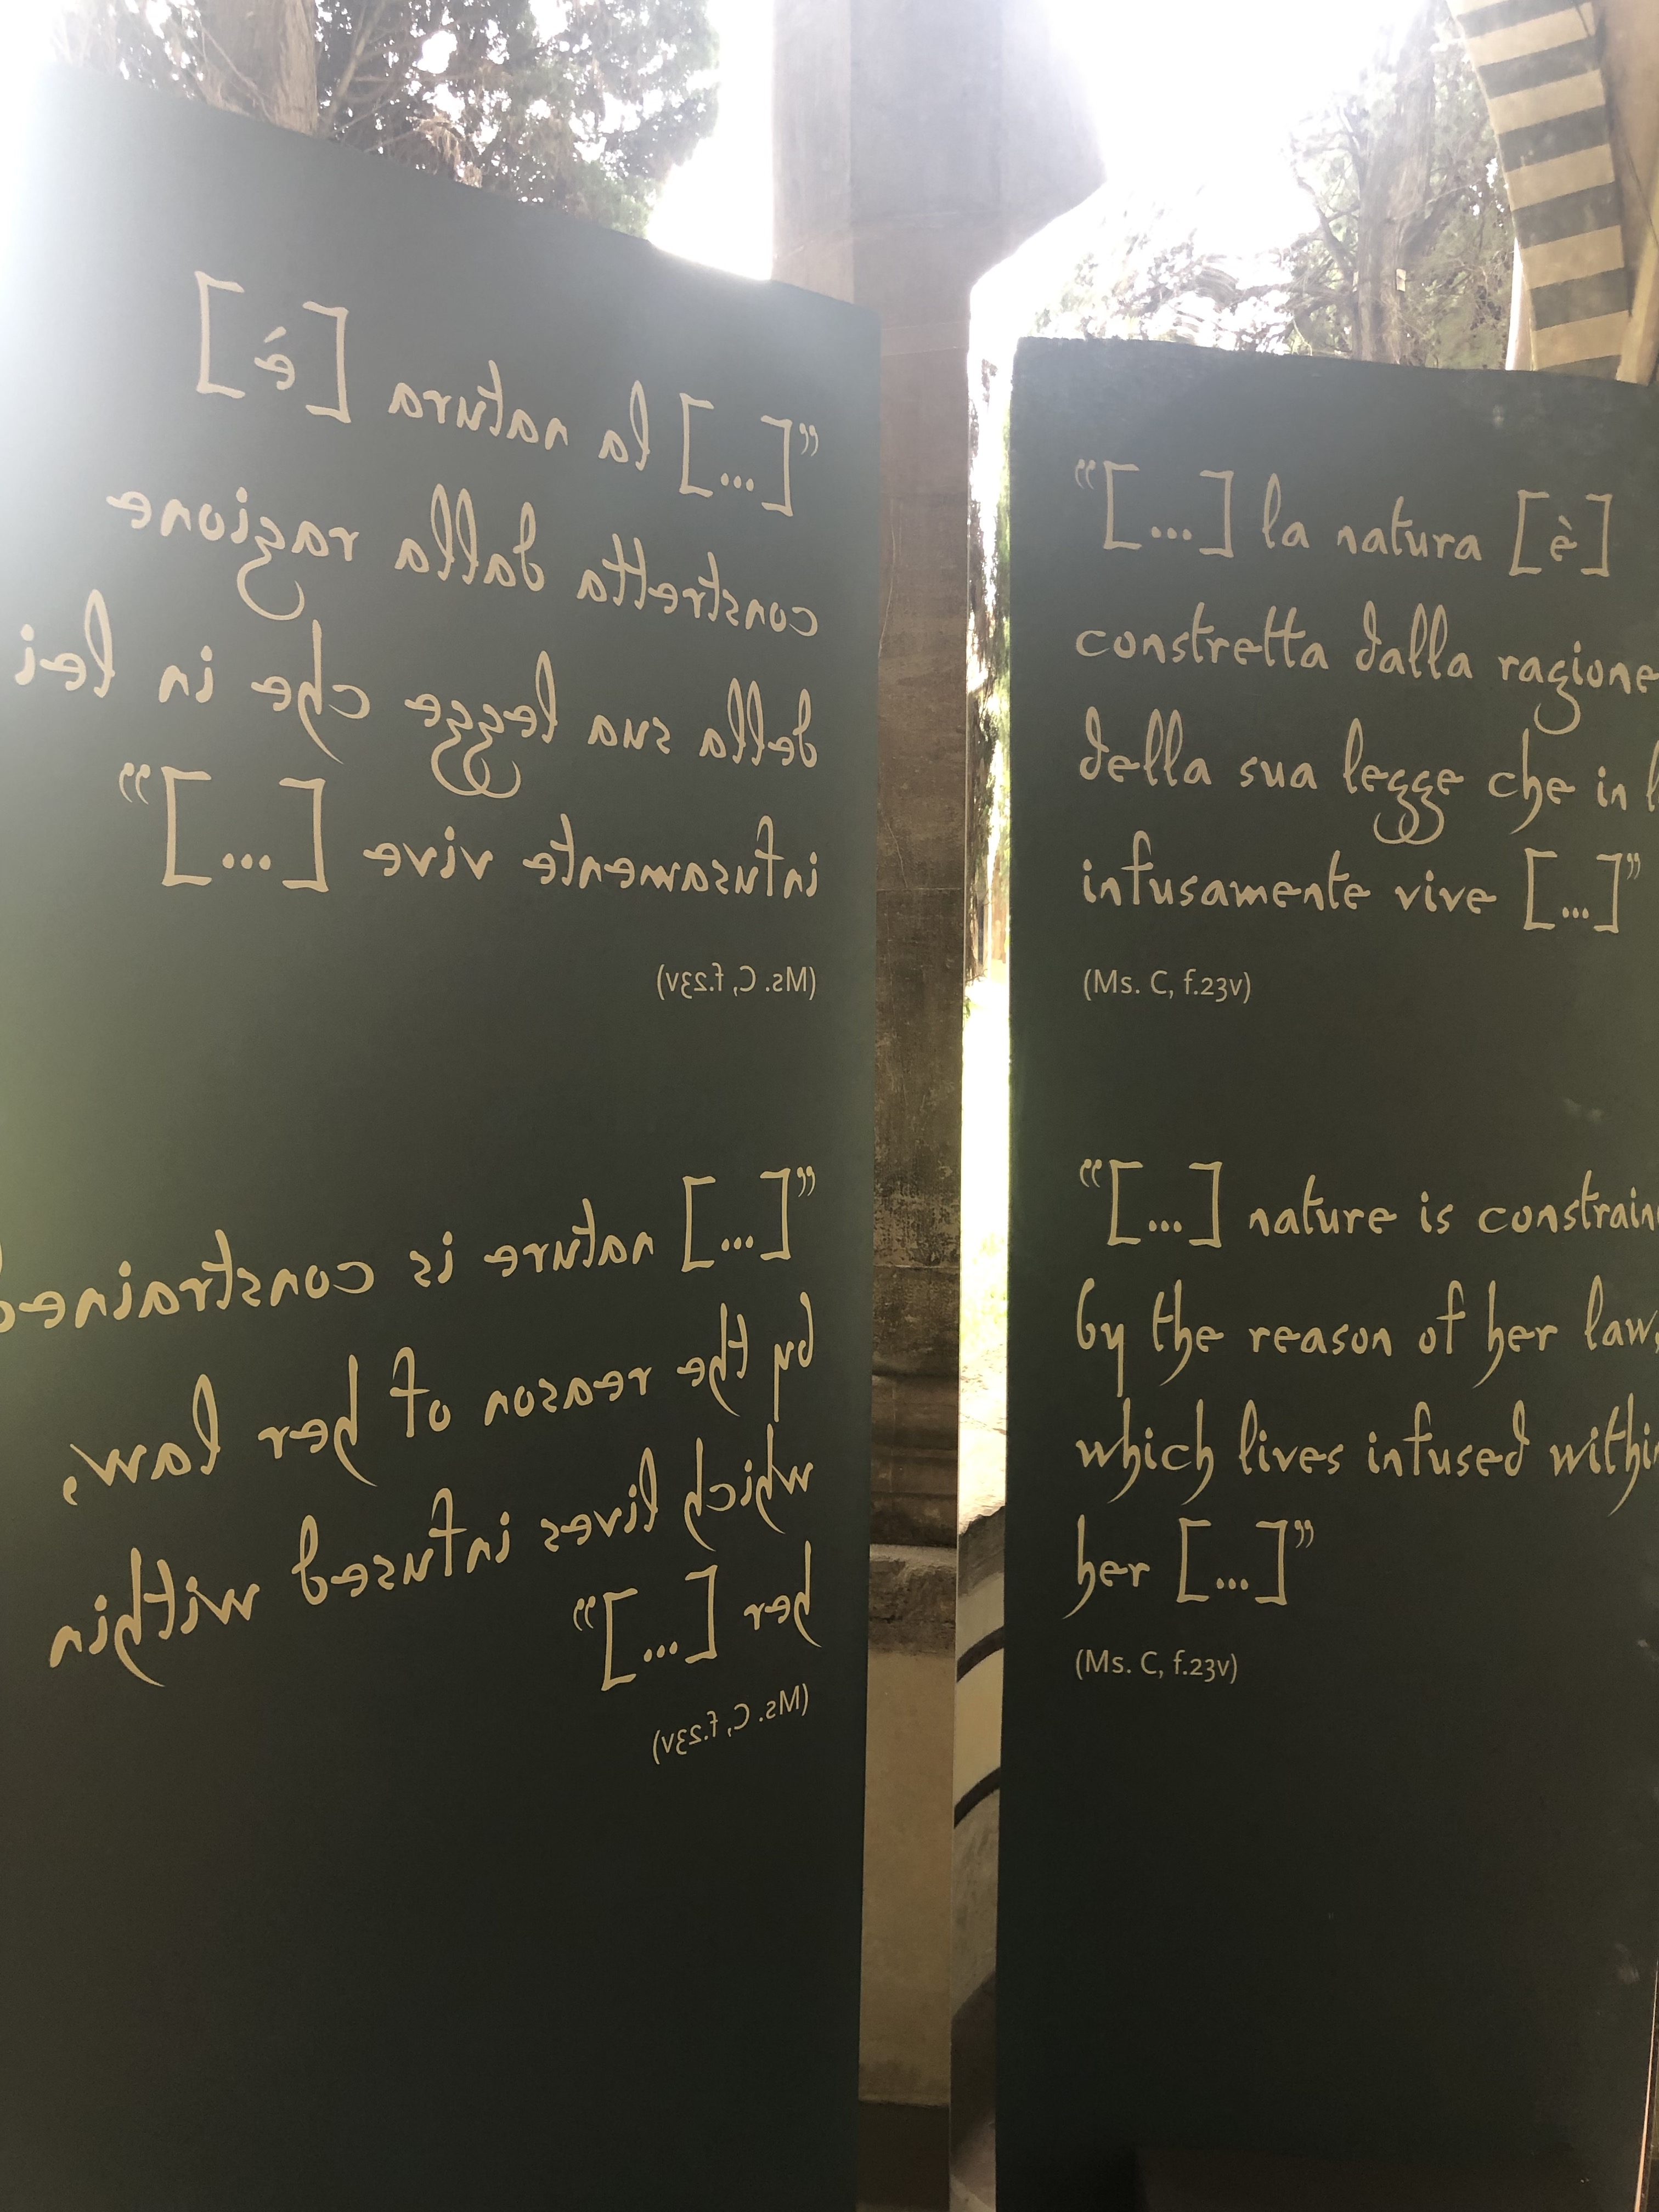 “[...] la natura [è]
constretta dalla ragione
della sua legge che in lei
infusamente vive [...]”
(Ms. C, f.23v)
“[...] nature is constrained
by the reason of her law,
which lives infused within
her [...]”
(Ms. C, f.23v)
“[...] la natura [è]
constretta dalla ragione
della sua legge che in
infusamente vive [...]”
(Ms. C, f.23v)
“[...] nature is
by the reason of her law,
which lives infused within
her [...]”
(Ms. C, f.23v)